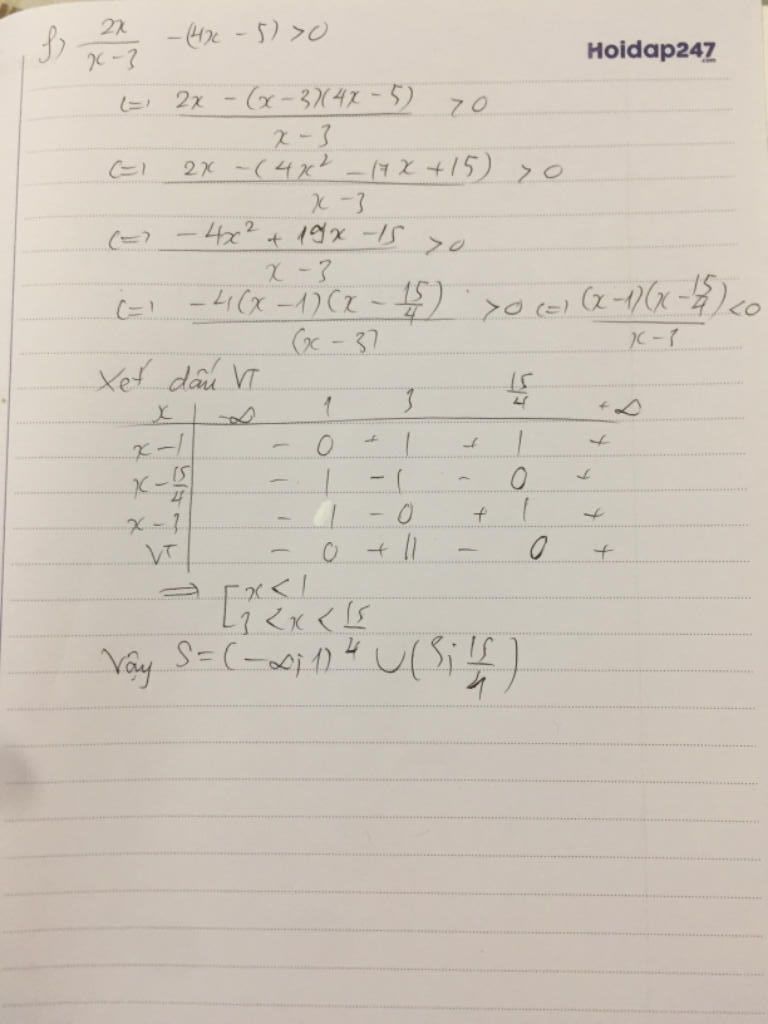 f) 2x/(x-3) -(4x-5) >0
Hoidap247.com
(=) (2x-(x-3)(4x-5))/(x-3) >0
(=) (2x-(4x²-17x+15))/(x-3) >0
(=) (-4x²+19x-15)/(x-3) >0
(=) (-4(x-1)(x-15/4))/(x-3) >0 (=) ((x-1)(x-15/4))/(x-3) <0
Xét dấu VT
x | -∞ 1 3 15/4 +∞
x-1 | - 0 + | + | +
x-15/4 | - | - | - 0 +
x-3 | - | - 0 + | +
VT | - 0 + || - 0 +
=> [ x<1
3<x<15/4
Vậy S=(-∞;1) ∪ (3;15/4)